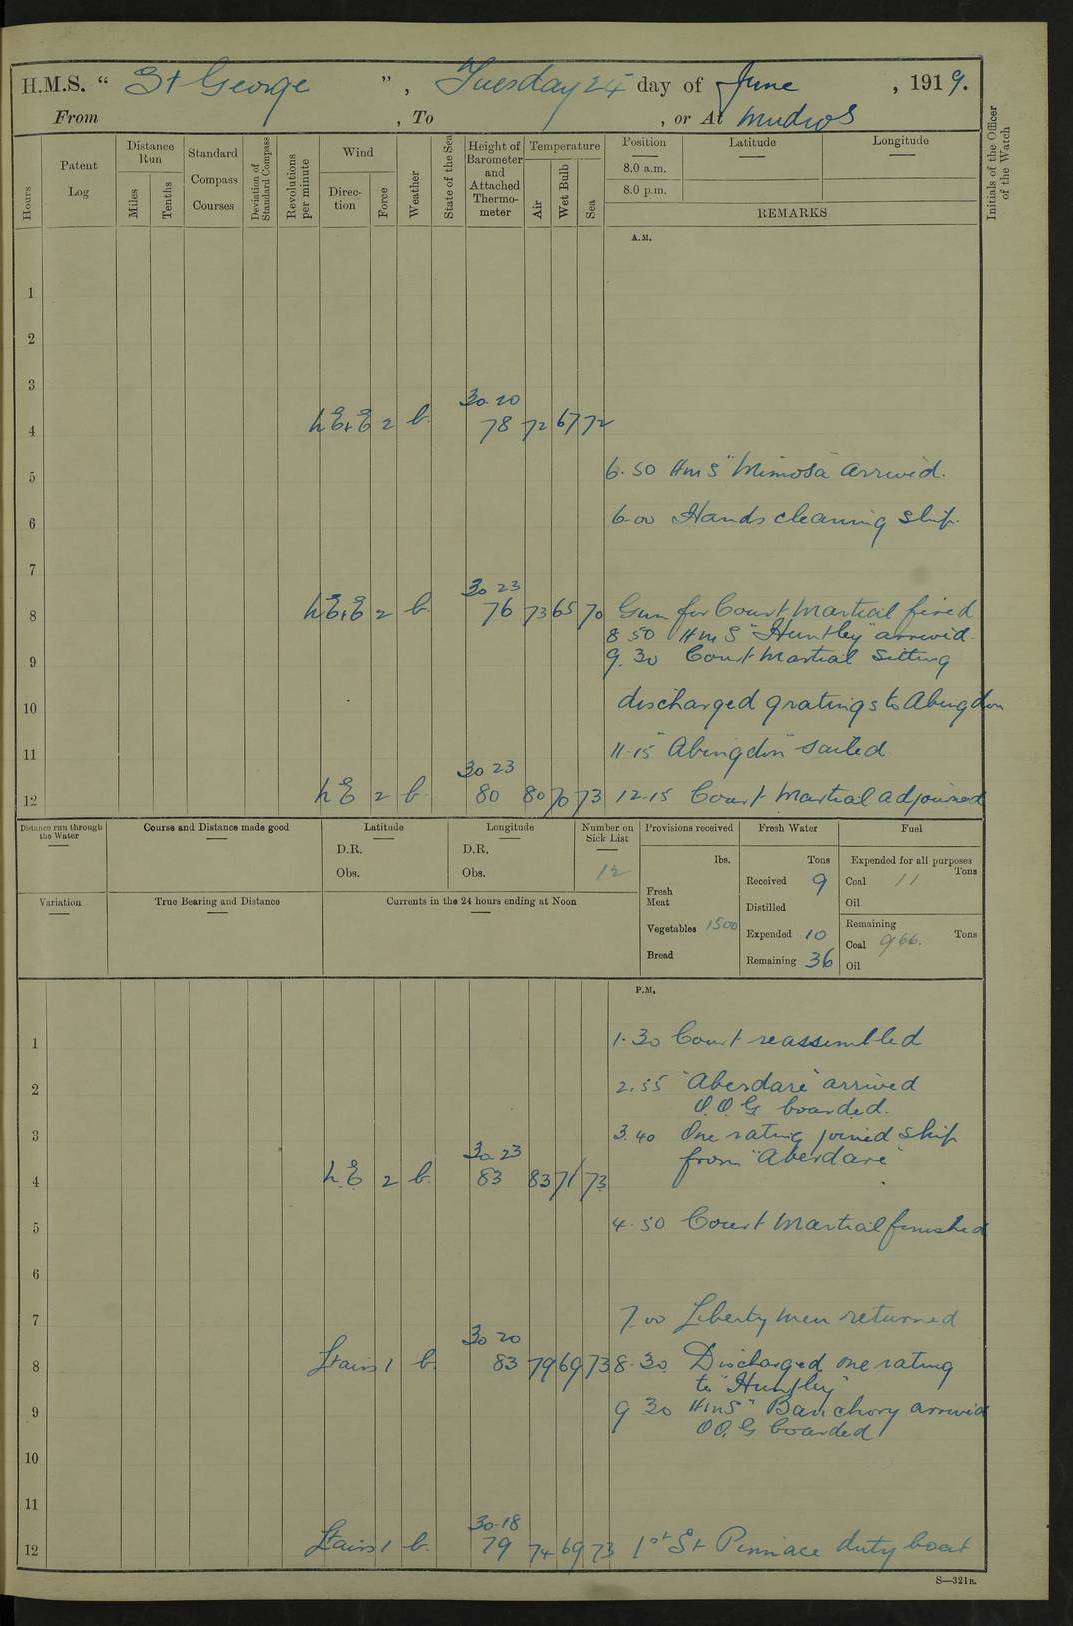 H.M.S. “ St George ”, Tuesday 24 day of June, 1919.
From , To , or At Mudros
Hours
Patent Log
Distance Run
Miles
Tenths
Standard Compass Courses
Deviation of Standard Compass
Revolutions per minute
Wind
Direction
Force
Weather
State of the Sea
Height of Barometer and Attached Thermometer
Temperature
Air
Wet Bulb
Sea
Position
8.0 a.m.
8.0 p.m.
Latitude
Longitude
REMARKS
Initials of the Officer of the Watch
A.M.
1
2
3
30.20
4 NE+E 2 b. 78 72 67 72
5 6.50 HMS "Mimosa" arrived.
6 6.00 Hands cleaning ship.
7
30 23
8 NE+E 2 b. 76 73 65 70 Gun for Court Martial fired
8 50 HMS "Huntley" arrived.
9 9.30 Court Martial sitting
10 discharged gratings to Abingdon
11 11.15 "Abingdon" sailed
30 23
12 NE 2 b. 80 80 70 73 12.15 Court Martial adjourned
Distance run through the Water
Course and Distance made good
Latitude
D.R.
Obs.
Longitude
D.R.
Obs.
Number on Sick List
12
Provisions received
lbs.
Fresh Meat
Vegetables 1500
Bread
Fresh Water
Tons
Received 9
Distilled
Expended 10
Remaining 36
Fuel
Expended for all purposes
Tons
Coal 11
Oil
Remaining
Coal 966. Tons
Oil
Variation
True Bearing and Distance
Currents in the 24 hours ending at Noon
P.M.
1 1.30 Court reassembled
2 2.55 "Aberdare" arrived
O.O.G boarded.
3 3.40 One rating joined ship
30.23
from "Aberdare"
4 N.E 2 b. 83 83 71 73
5 4.50 Court Martial finished
6
7 7.00 Liberty men returned
30 20
8 Lt airs 1 b. 83 79 69 73 8.30 Discharged one rating
to "Huntley"
9 9 30 HMS "Banchory arrived
OO.G boarded
10
11
30.18
12 Lt airs 1 b. 79 74 69 73 1st St Pinnace duty boat
S—321B.